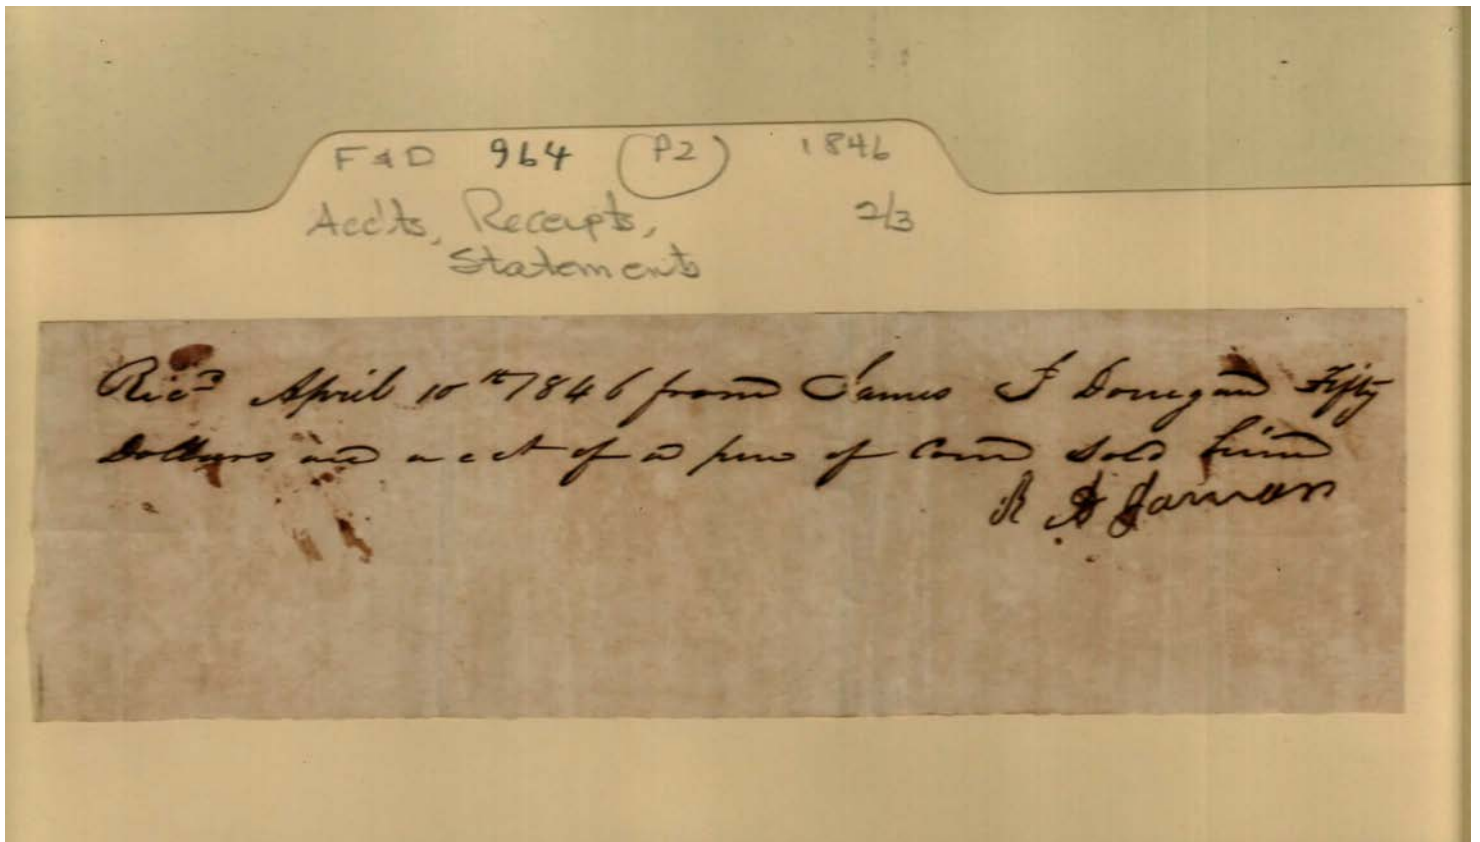 F & D 964 (P2) 1846
Accts, Receipts, 2/3
Statements
Recd April 10th 1846 from James J Donegan Fifty
Dollars on acct of a pen of Corn sold him
R A Jarman